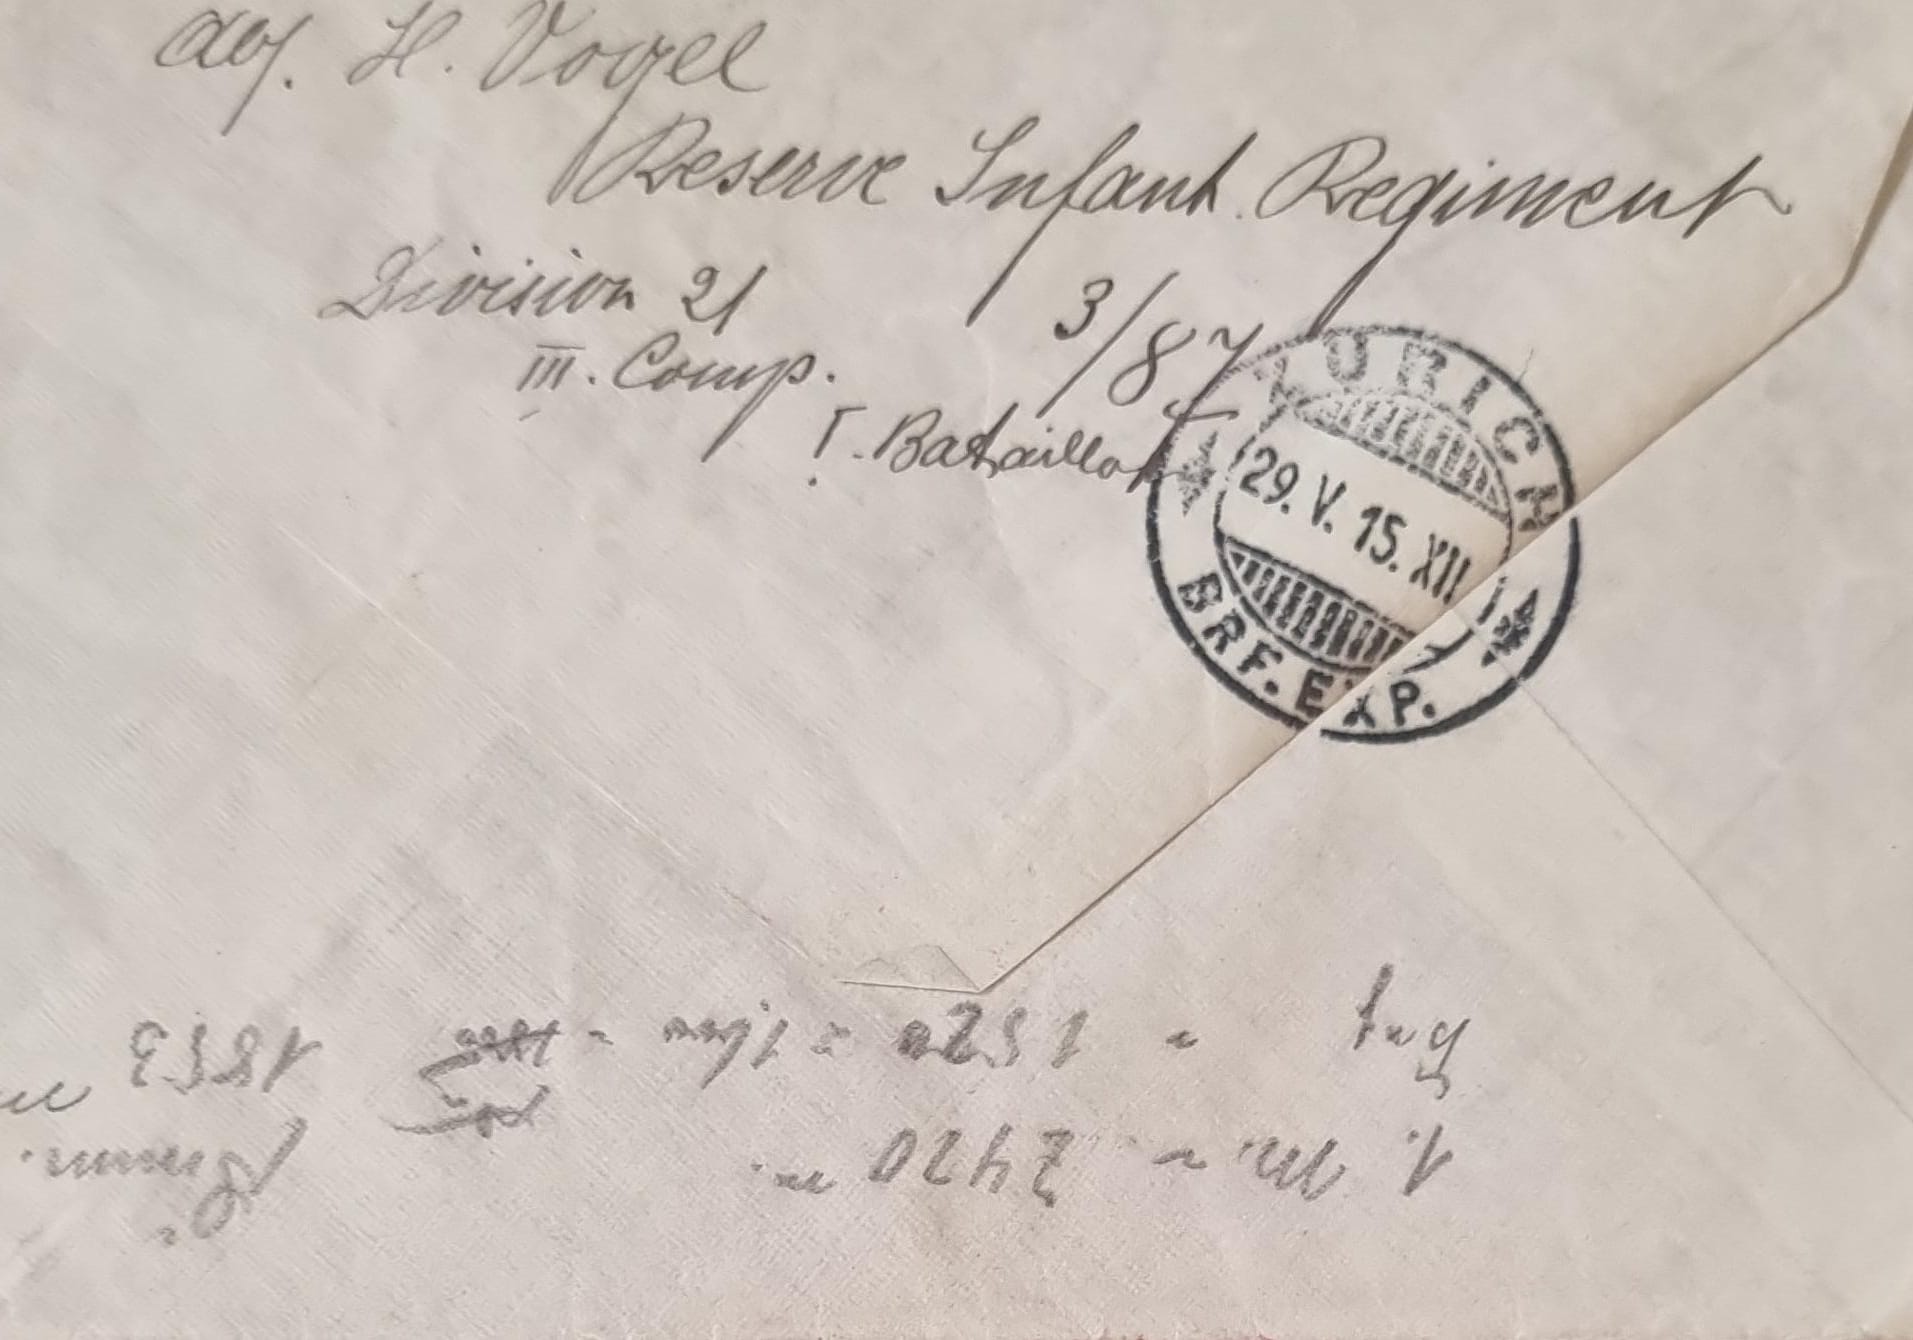 Abs. H. Vogel
Reserve Infant. Regiment
Division 21
3/87
III. Comp.
I. Bataillon
ZÜRICH
29. V. 15. XII
BRF. EXP.
1. M. = 2420 m.
1520 =
1853 m